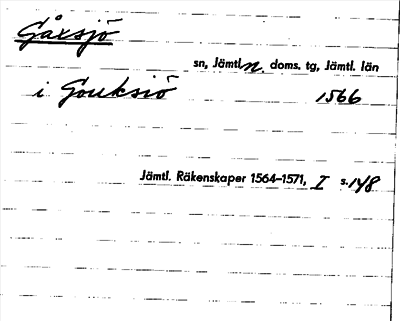 Gåxsjö
sn, Jämtl. n. doms. tg, Jämtl. län
i Gouksiö 1566
Jämtl. Räkenskaper 1564-1571, I s. 148